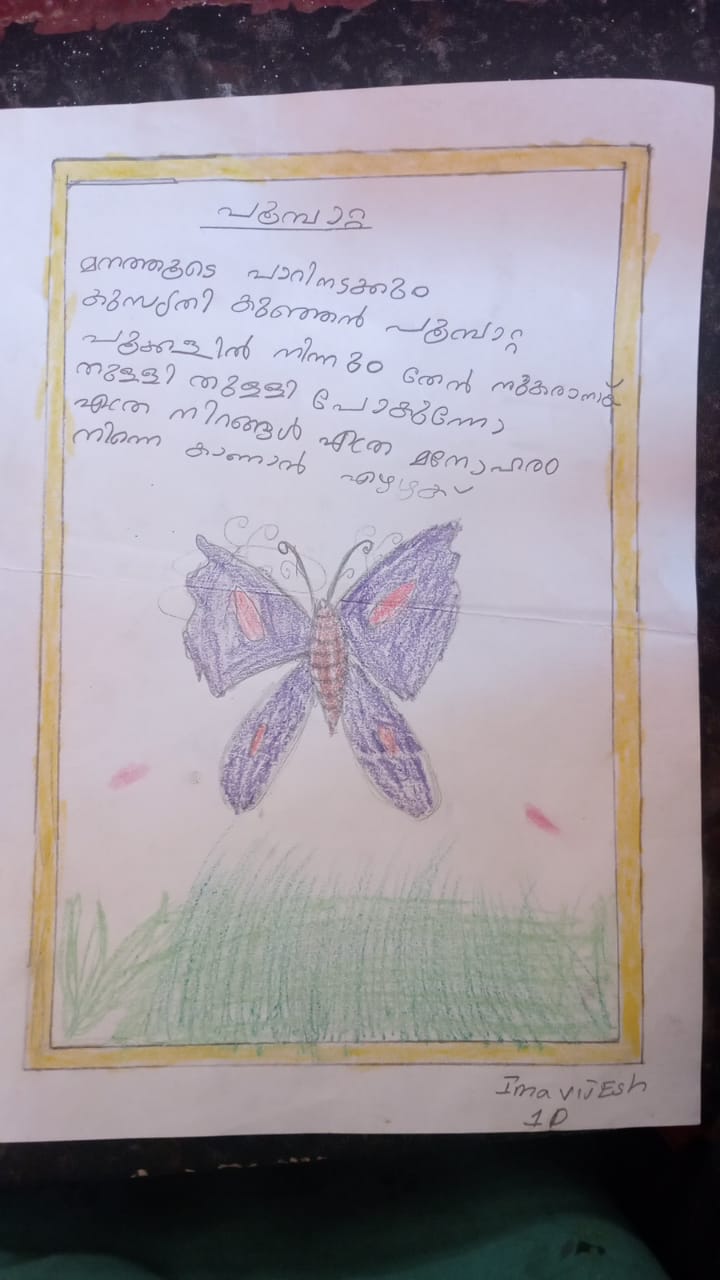 പൂമ്പാറ്റ
മനത്തൂടെ പാറിനടക്കും
കുസൃതി കുഞ്ഞൻ പൂമ്പാറ്റ
പൂക്കളിൽ നിന്നും തേൻ നുകരാനായ്
തുള്ളി തുള്ളി പോകുന്നോ
എത്ര നിറങ്ങൾ എത്ര മനോഹരം
നിന്നെ കാണാൻ
Ima vijEsh
1D